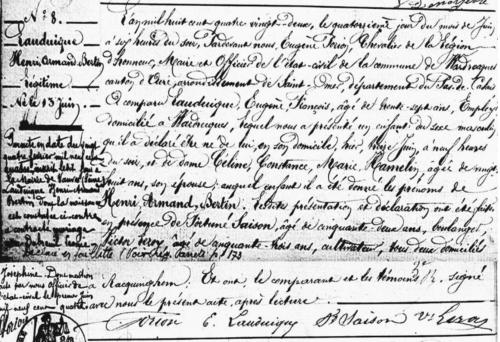 N° 8.
Lauduique
Henri, Armand, Bertin
légitime
Né le 13 juin
L'an mil huit cent quatre vingt-deux, le quatorzième jour du mois de Juin
à six heures du soir, Pardevant nous, Eugène Chevalier de la Légion
d'honneur, Maire et Officier de l'état-civil de la commune de Wardrecques
canton d'Aire, arrondissement de Saint-Omer, département du Pas-de-Calais
a comparu Lauduique, Eugène François, âgé de trente-sept ans, Employé
domicilié à Wardrecques, lequel nous a présenté un enfant du sexe masculin
qu'il a déclaré être né de lui, en son domicile, hier, treize Juin, à neuf heures
du soir, et de dame Céline, Constance, Marie, Hamelin, âgée de vingt
huit ans, son épouse; auquel enfant il a été donné les prénoms de
Henri, Armand, Bertin. Lesdites présentation et déclaration ont été faites
en présence de Fortuné Saison, âgé de cinquante-deux ans, boulanger,
Victor Leroy, âgé de cinquante-trois ans, cultivateur, tous deux domiciliés
à Racquinghem. Et ont, le comparant et les témoins, signé
avec nous le présent acte, après lecture.
Par acte en date du vingt
quatre février mil neuf cent
Lauduique Henri Armand
Bertin, dont la naissance
est constatée ci-contre
a contracté mariage
Joséphine. Dont mention
faite par nous officier de
l'état-civil le premier juin
mil neuf cent quatre
E. Lauduique F. Saison V. Leroy